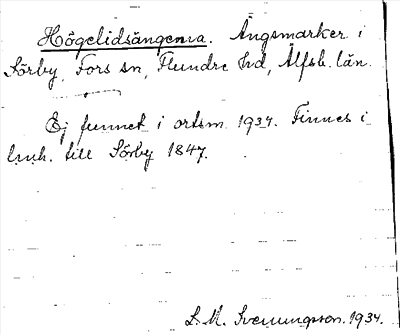 Högelidsängarna. Ängsmarker i
Sörby, Fors sn, Flundre hd, Älfsb. län.
Ej funnet i ortsm. 1934. Finnes i
lmh. till Sörby 1847.
S. M. Svenungsson. 1934.